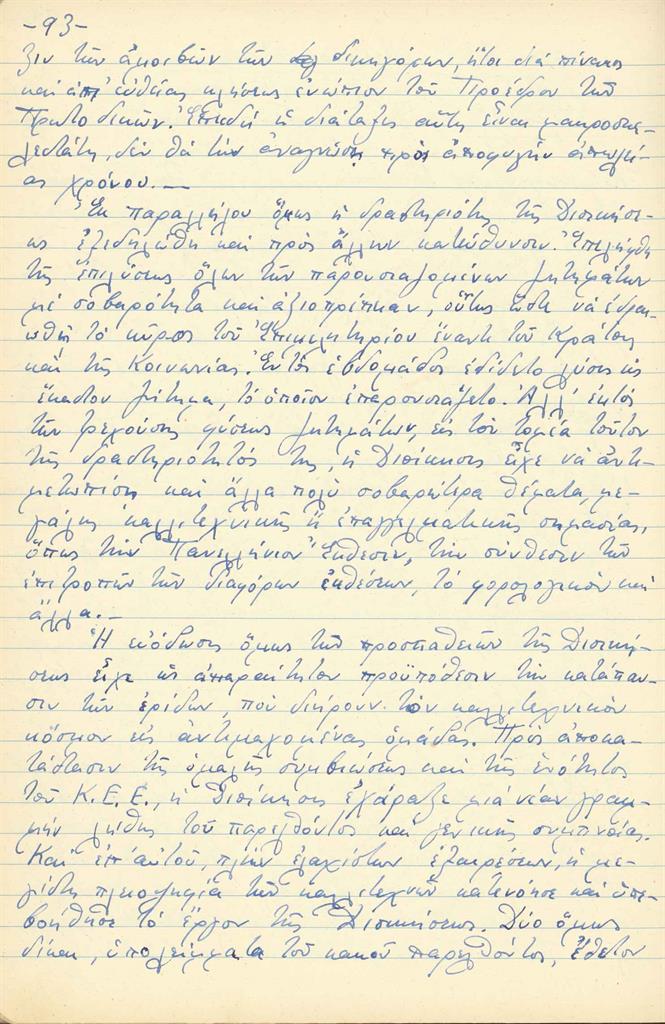 -93-
ξιν τῶν ἀμοιβῶν τῶν δικηγόρων, ἤτοι διά πίνακος
καί ἀπ' εὐθείας κλήσεως ἐνώπιον τοῦ Προέδρου τῶν
Πρωτοδικῶν. Ἐπειδή ἡ διάταξις αὕτη εἶναι μακροσκε-
λεστάτη, δέν θά τήν ἀναγνώσῃ πρός ἀποφυγήν ἀπωλεί-
ας χρόνου.—
Ἐκ παραλλήλου ὅμως ἡ δραστηριότης τῆς Διοικήσε-
ως ἐξεδηλώθη καί πρός ἄλλην κατεύθυνσιν. Ἐπελήφθη
τῆς ἐπιλύσεως ὅλων τῶν παρουσιαζομένων ζητημάτων
μέ σοβαρότητα καί ἀξιοπρέπειαν, οὕτως ὥστε νά ἑδραι-
ωθῇ τό κῦρος τοῦ Ἐπιμελητηρίου ἔναντι τοῦ Κράτους
καί τῆς Κοινωνίας. Ἐντός ἑβδομάδος ἐδίδετο λύσις εἰς
ἕκαστον ζήτημα, τό ὁποῖον ἐπαρουσιάζετο. Ἀλλ' ἐκτός
τῶν τρεχούσης φύσεως ζητημάτων, εἰς τόν τομέα τοῦτον
τῆς δραστηριότητός της, ἡ Διοίκησις εἶχε νά ἀντι-
μετωπίσῃ καί ἄλλα πολύ σοβαρώτερα θέματα, με-
γάλης καλλιτεχνικῆς ἤ ἐπαγγελματικῆς σημασίας,
ὅπως τήν Πανελλήνιον Ἔκθεσιν, τήν σύνθεσιν τῶν
ἐπιτροπῶν τῶν διαφόρων ἐκθέσεων, τό φορολογικόν καί
ἄλλα.—
Ἡ εὐόδωσις ὅμως τῶν προσπαθειῶν τῆς Διοική-
σεως εἶχε ὡς ἀπαραίτητον προϋπόθεσιν τήν κατάπαυ-
σιν τῶν ἐρίδων, πού διῄρουν τόν καλλιτεχνικόν
κόσμον εἰς ἀντιμαχομένας ὁμάδας. Πρός ἀποκα-
τάστασιν τῆς ὁμαλῆς συμβιώσεως καί τῆς ἑνότητος
τοῦ Κ.Ε.Ε., ἡ Διοίκησις ἐχάραξε μιά νέαν γραμ-
μήν λήθης τοῦ παρελθόντος καί γενικῆς συμπνοίας.
Καί ἐπ' αὐτοῦ, πλήν ἐλαχίστων ἐξαιρέσεων, ἡ με-
γίστη πλειοψηφία τῶν καλλιτεχνῶν κατενόησε καί ὑπε-
βοήθησε τό ἔργον τῆς Διοικήσεως. Δύο ὅμως
δίκαι, ὑπολείμματα τοῦ κακοῦ παρελθόντος, ἔθετον